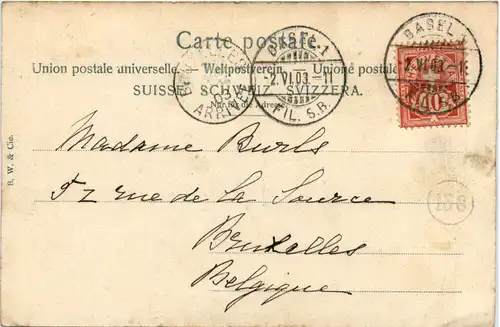 Carte postale
Union postale universelle. — Weltpostverein. — Unione postale
SUISSE. SCHWEIZ. SVIZZERA.
Nur für die Adresse
BASEL.1
-2.VI.03.-11
FIL. S.B.
BASEL.1
ARRI
10
B. W. & Cie.
Madame Burls
52 rue de la Source
Bruxelles
Belgique
138